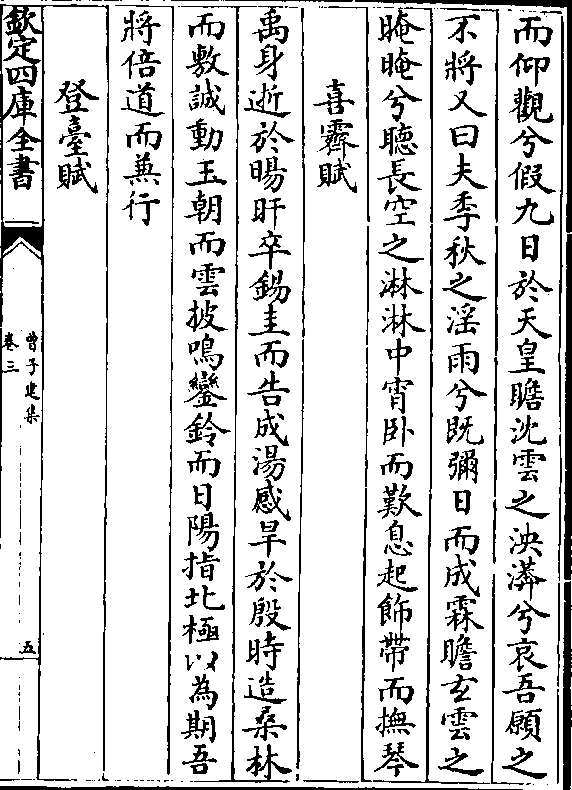 而仰觀兮假九日於天皇瞻沈雲之泱漭兮哀吾願之
不將又曰夫季秋之淫雨兮既彌日而成霖瞻玄雲之
晻晻兮聽長空之淋淋中宵卧而歎息起飾帶而撫琴
喜霽賦
禹身逝於陽旰卒錫圭而告成湯感旱於殷時造桑林
而敷誠動玉朝而雲披鳴鑾鈴而日陽指北極以為期吾
將倍道而兼行
登臺賦
欽定四庫全書
曹子建集
卷三
五